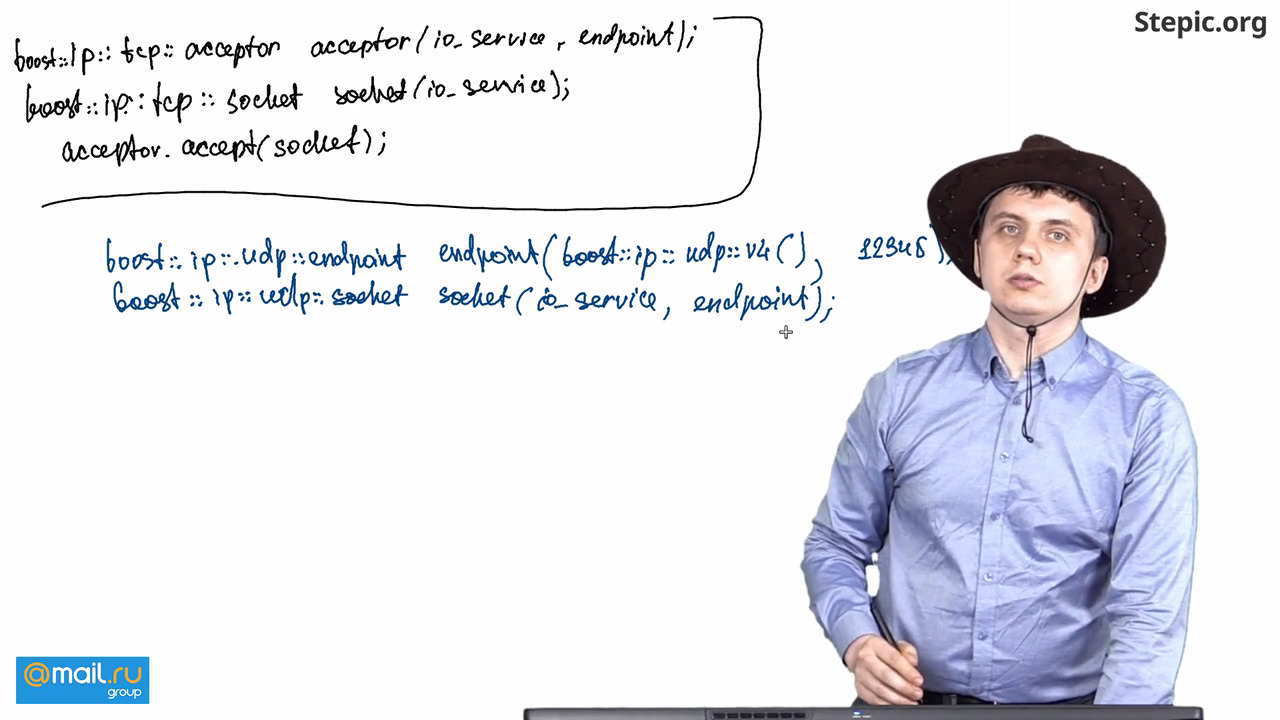 Stepic.org
boost::ip::tcp::acceptor acceptor(io_service, endpoint);
boost::ip::tcp::socket socket(io_service);
acceptor.accept(socket);
boost::ip::udp::endpoint endpoint(boost::ip::udp::v4(), 12345);
boost::ip::udp::socket socket(io_service, endpoint);
@mail.ru
group